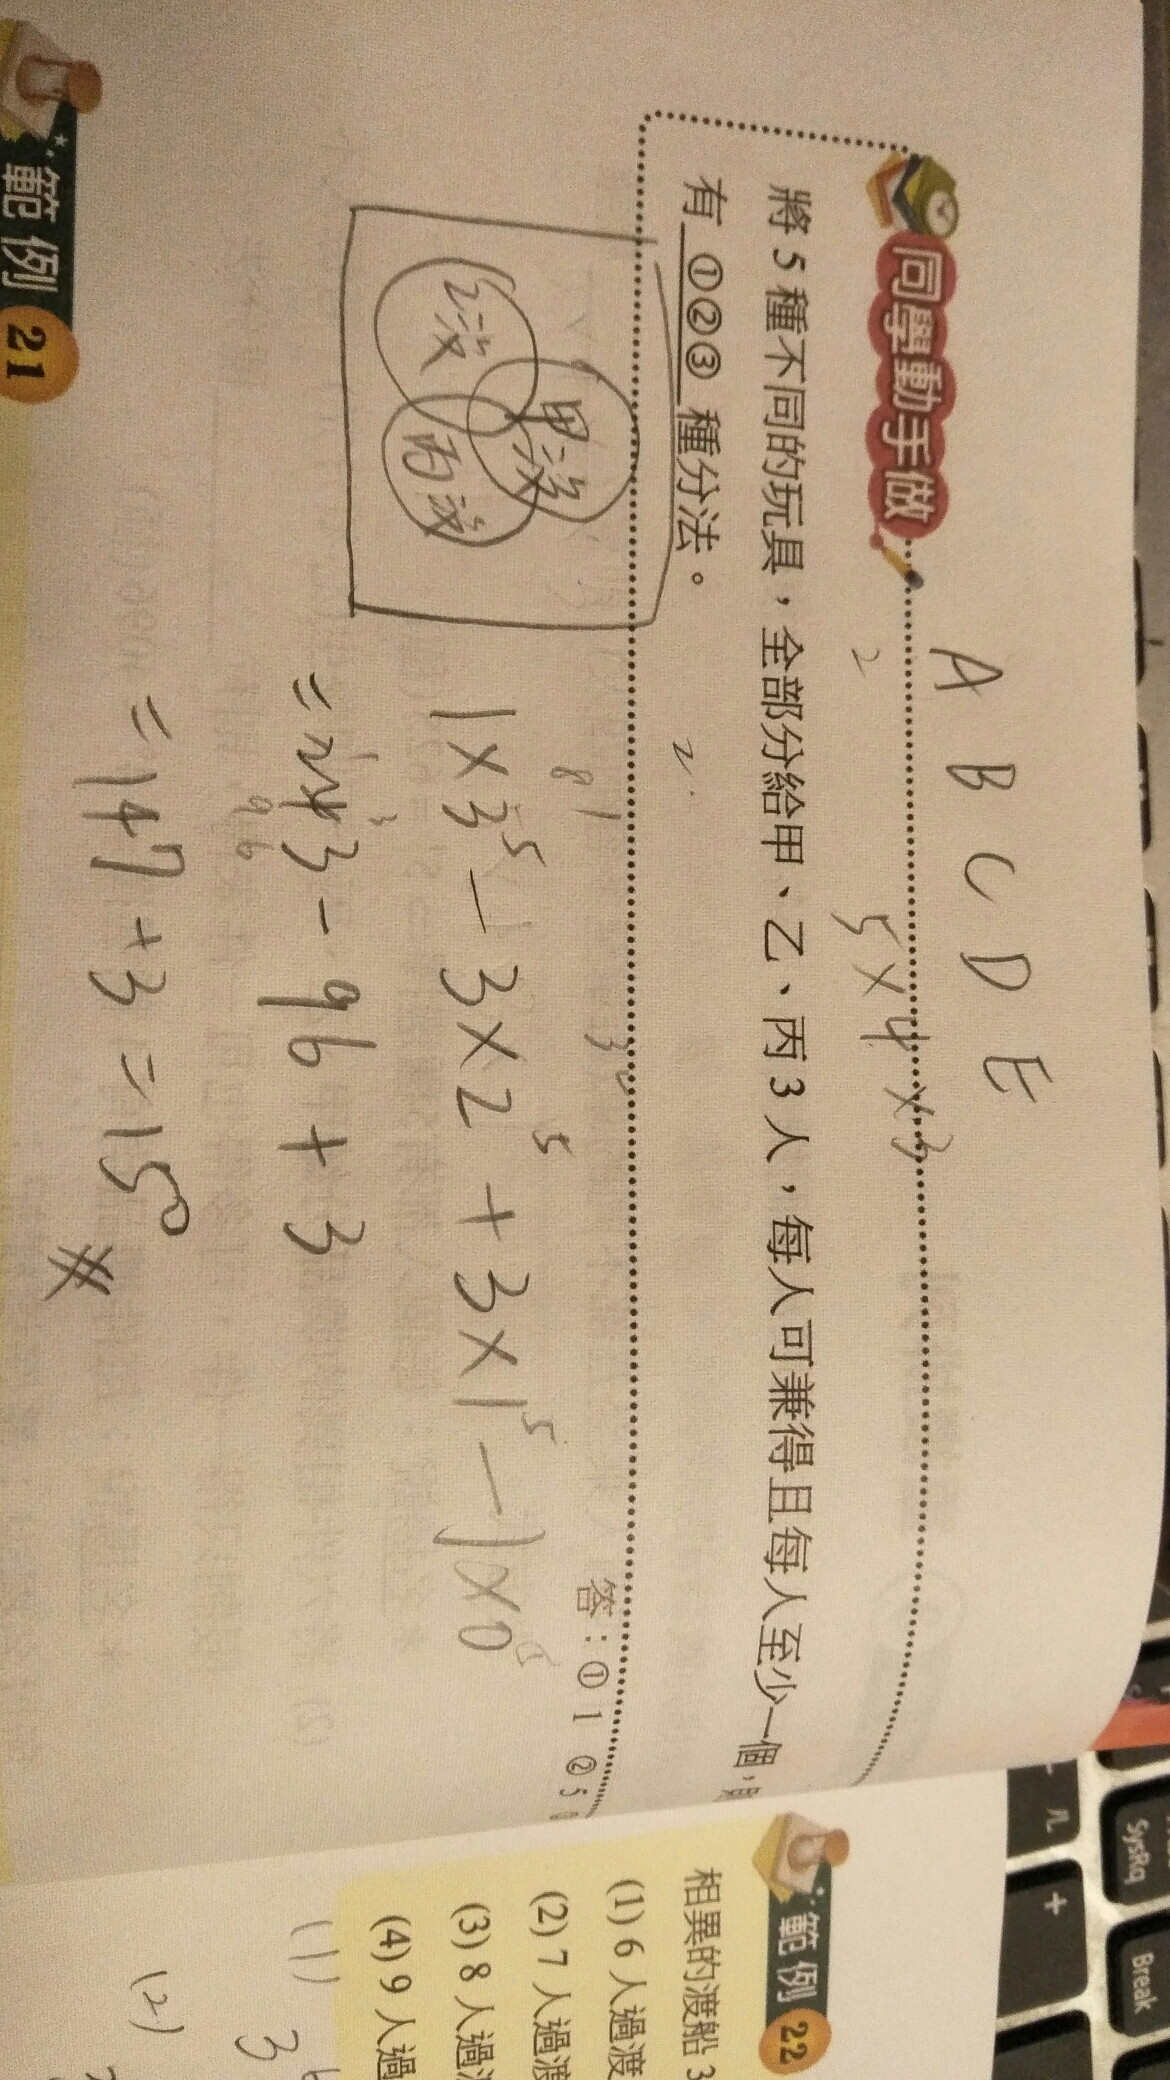 A B C D E
同學動手做
5×4×3
2
將5種不同的玩具，全部分給甲、乙、丙3人，每人可兼得且每人至少一個，
有 ①②③ 種分法。
2
81
甲沒
乙沒
丙沒
答：① 1 ② 5
1×3⁵－3×2⁵＋3×1⁵－1×0⁵
=243－96＋3
96
=147+3=150
範例 21
範例 22
相異的渡船3
(1) 6人過渡
(2) 7人過渡
(3) 8人過渡
(4) 9人過
(1)
3
(2)
SysRq
Break
+
ㄦ